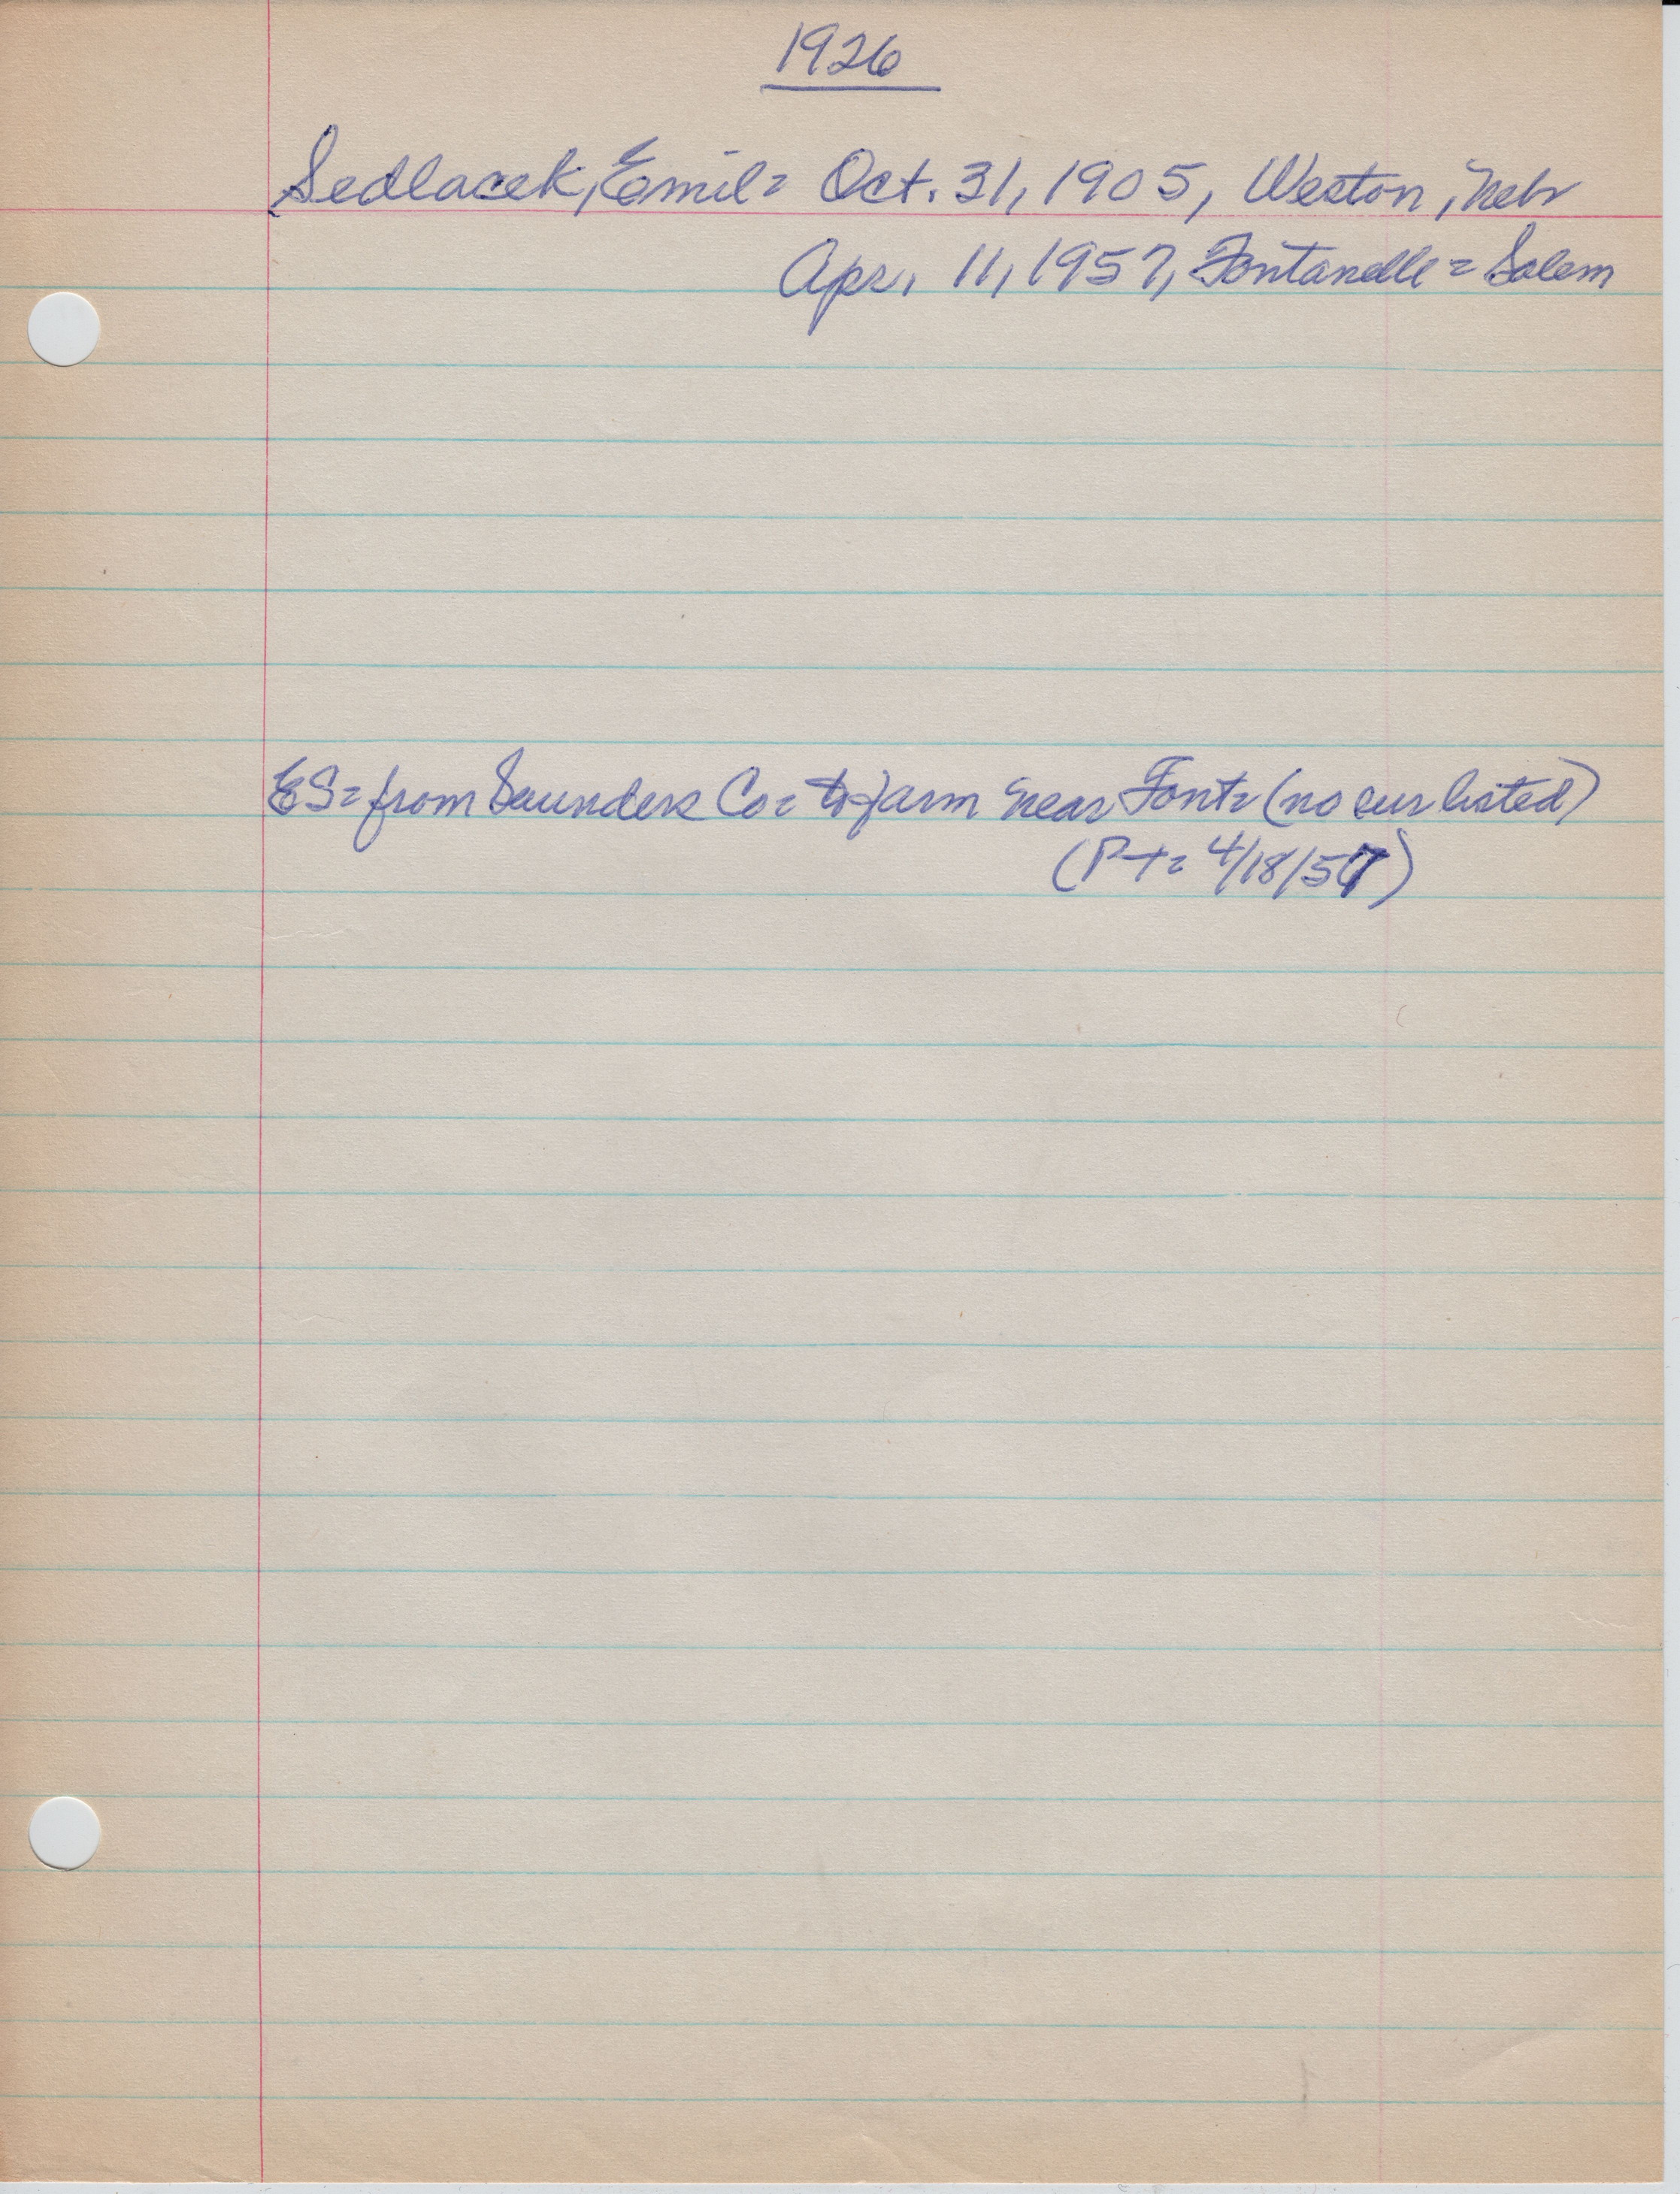 1926
Sedlacek, Emil = Oct. 31, 1905, Weston, Nebr
Apr. 11, 1957, Fontanelle = Salem
ES = from Saunders Co = to farm near Font = (no sur listed)
(P-t = 4/18/57)